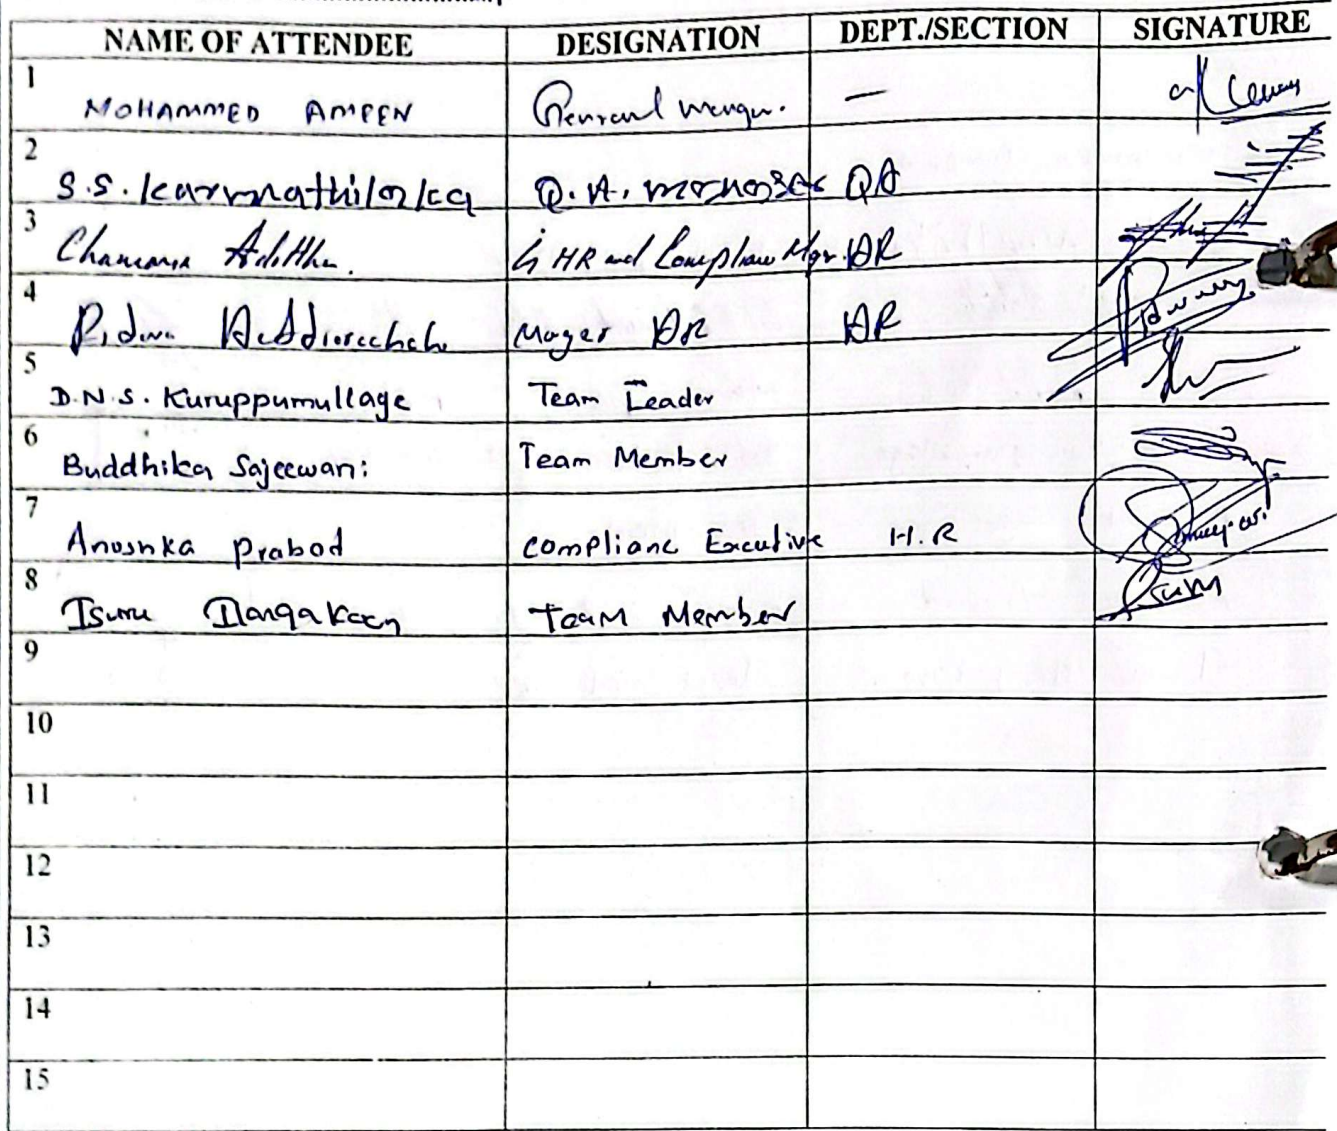 NAME OF ATTENDEE DESIGNATION DEPT./SECTION SIGNATURE
1 MOHAMMED AMEEN General Manger. —
2 S.S. Karunathilaka Q.A. manager QA
3 HR and Compliance Mgr. HR
4 HR HR
5 D.N.S. Kuruppumullage Team Leader
6 Buddhika Sajeewani
Team Member
7 Anushka Prabod Complianc Executive H.R
8 Isuru Team Member
9
10
11
12
13
14
15